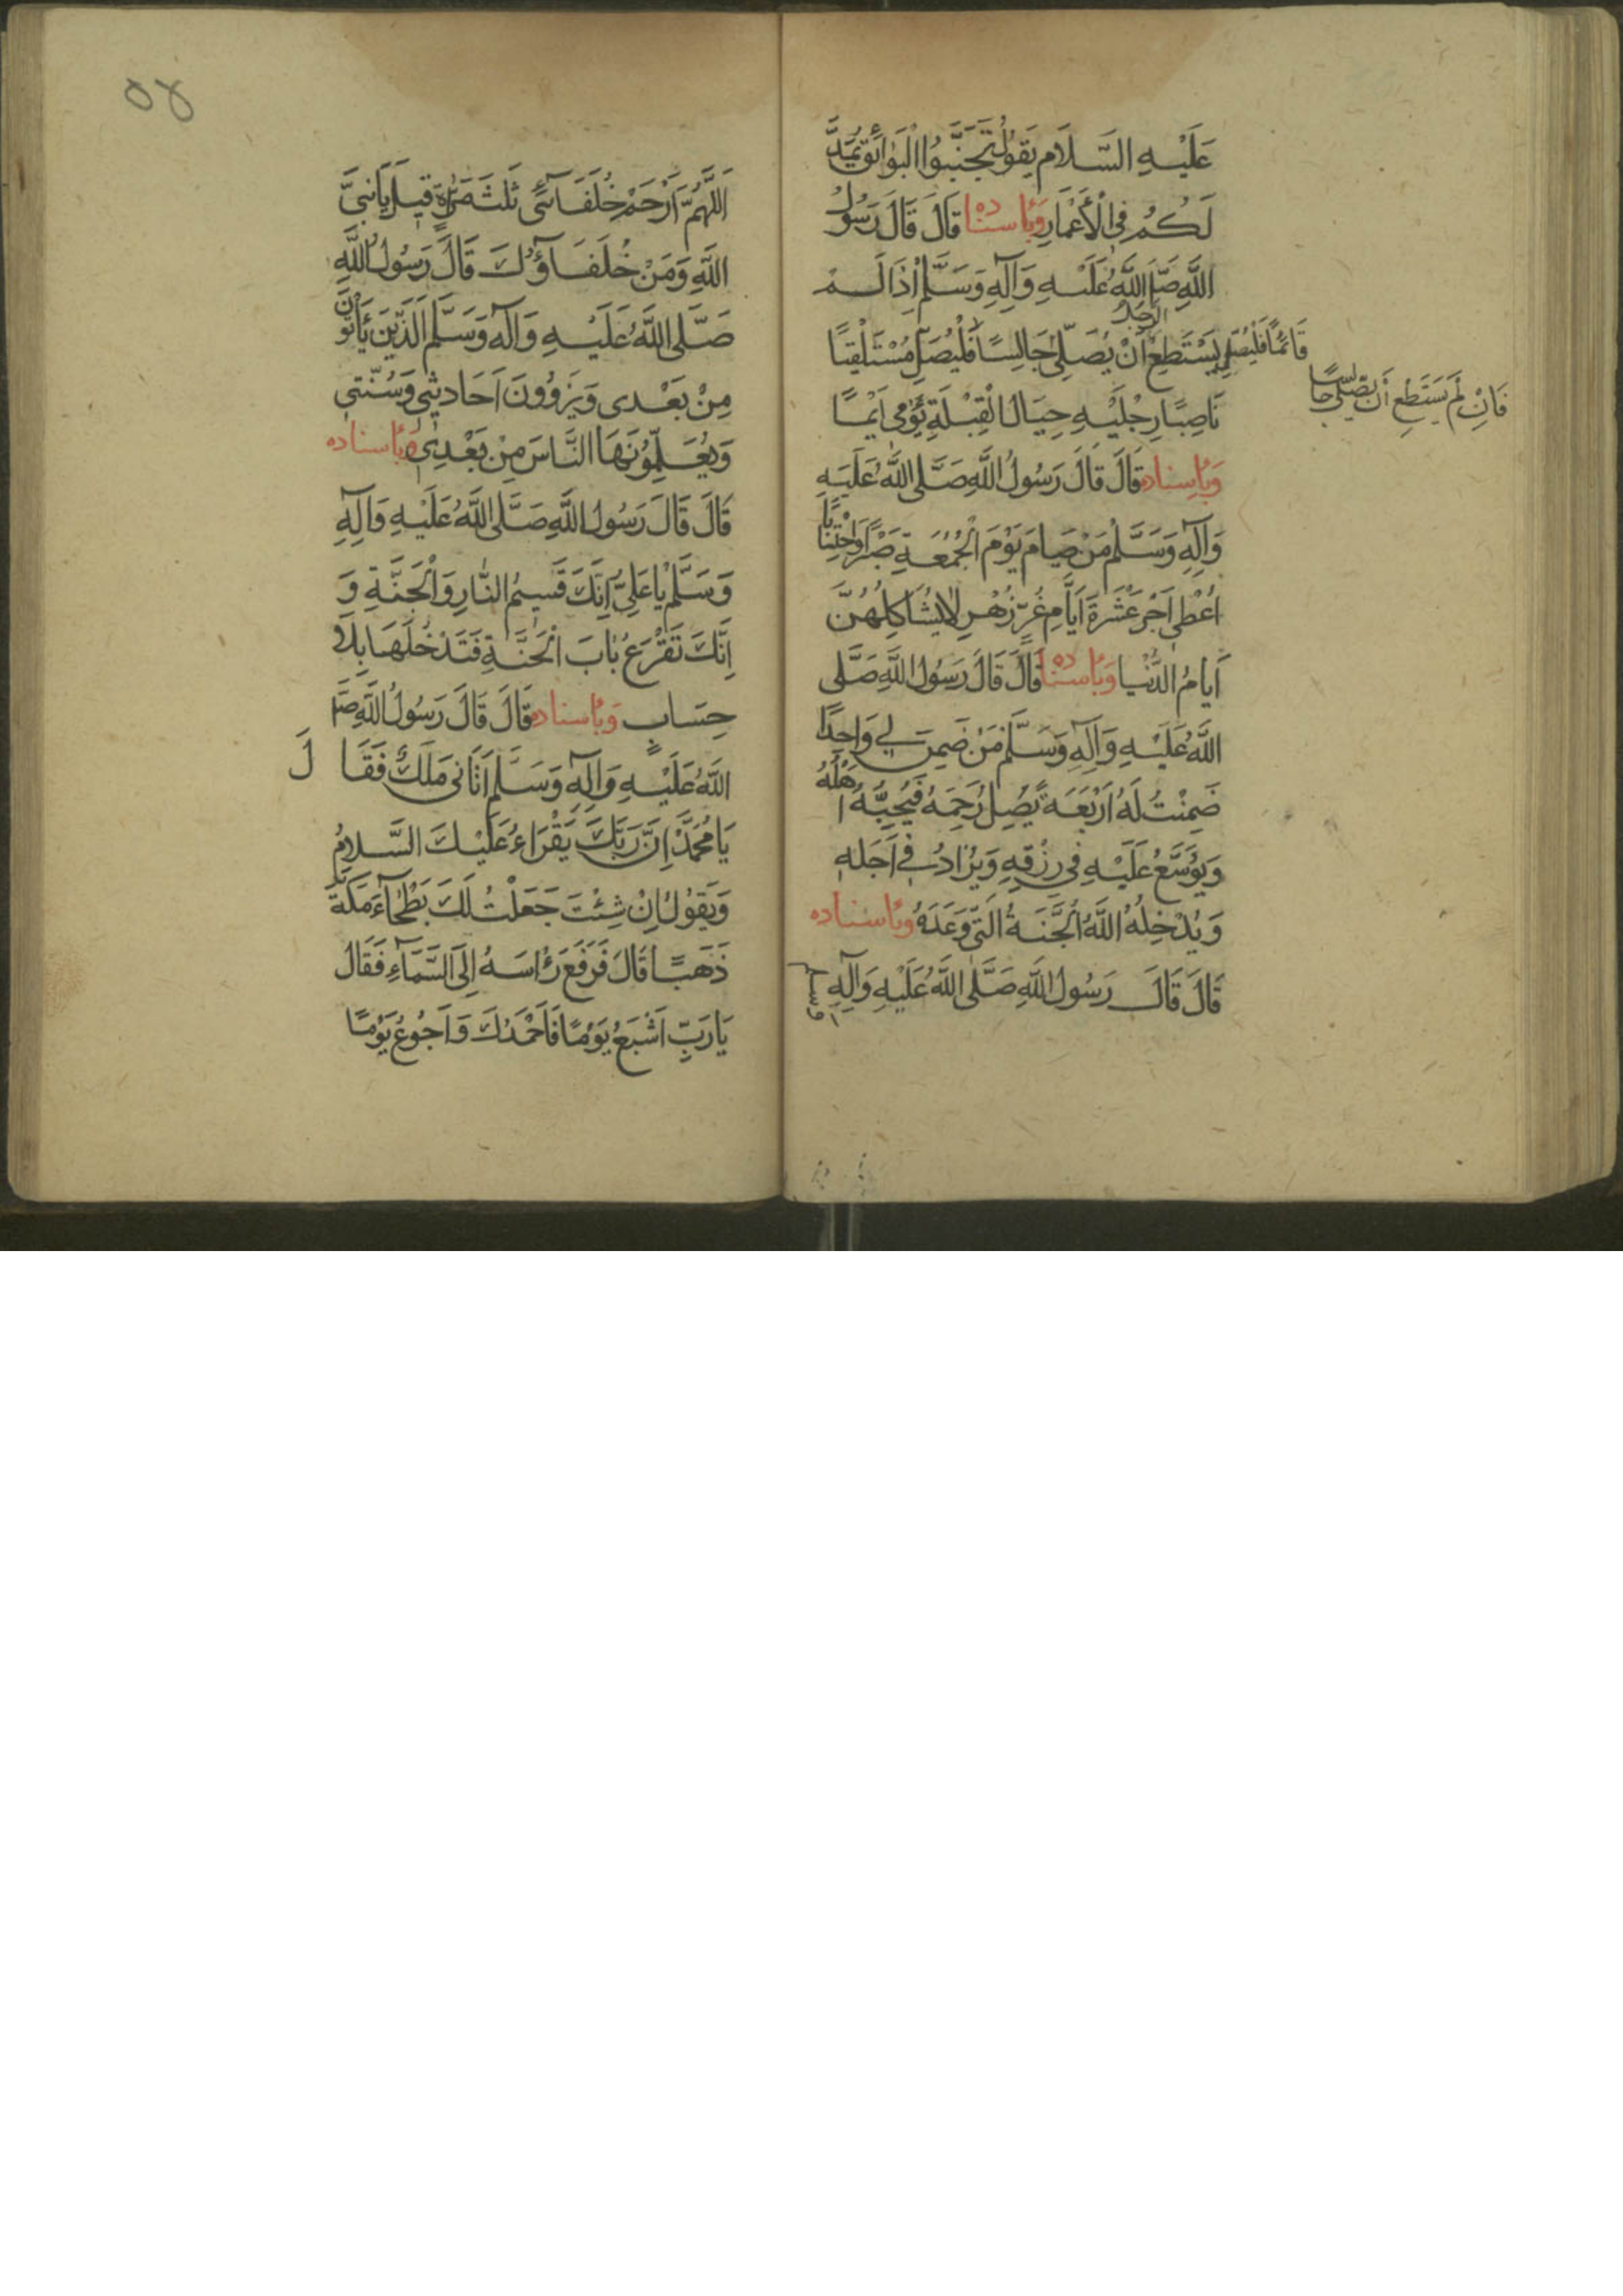 عَلَيْهِ السَّلَامُ يَقُولُ تَجَنَّبُوا الْبَوَائِقَ يُمَدَّ
لَكُمْ فِي الْأَعْمَارِ وَبِأسناده قَالَ قَالَ رَسُولُ
اللَّهِ صَلَّى اللَّهُ عَلَيْهِ وَآلِهِ وَسَلَّمَ إِذَا لَمْ
يَسْتَطِعِ الرَّجُلُ أَنْ يُصَلِّيَ جَالِسًا فَلْيُصَلِّ مُسْتَلْقِيًا
قَائِمًا فَلْيُصَلِّ
فَإِنْ لَمْ يَسْتَطِعْ أَنْ يُصَلِّيَ جَالِسًا
نَاصِبًا رِجْلَيْهِ حِيَالَ الْقِبْلَةِ يُؤْمِي إِيْمًا
وَبِأسناده قَالَ قَالَ رَسُولُ اللَّهِ صَلَّى اللَّهُ عَلَيْهِ
وَآلِهِ وَسَلَّمَ مَنْ صَامَ يَوْمَ الْجُمُعَةِ صَبْرًا وَاحْتِسَابًا
أُعْطِيَ أَجْرَ عَشَرَةَ أَيَّامٍ غُرٍّ زُهْرٍ لَا يُشَاكِلُهُنَّ
أَيَّامُ الدُّنْيَا وَبِأسناده قَالَ قَالَ رَسُولُ اللَّهِ صَلَّى
اللَّهُ عَلَيْهِ وَآلِهِ وَسَلَّمَ مَنْ ضَمِنَ لِي وَاحِدًا
ضَمِنْتُ لَهُ أَرْبَعَةً يَصِلُ رَحِمَهُ فَيُحِبُّهُ أَهْلُهُ
وَيُوَسَّعُ عَلَيْهِ فِي رِزْقِهِ وَيُزَادُ فِي أَجَلِهِ
وَيُدْخِلُهُ اللَّهُ الْجَنَّةَ الَّتِي وَعَدَهُ وبأسناده
قَالَ قَالَ رَسُولُ اللَّهِ صَلَّى اللَّهُ عَلَيْهِ وَآلِهِ وسلم
٥٤
اَللَّهُمَّ ارْحَمْ خُلَفَائِي ثَلٰثَ مَرَّاتٍ قِيلَ يَا نَبِيَّ
اللَّهِ وَمَنْ خُلَفَاؤُكَ قَالَ رَسُولُ اللَّهِ
صَلَّى اللَّهُ عَلَيْهِ وَآلِهِ وَسَلَّمَ الَّذِينَ يَأْتُونَ
مِنْ بَعْدِي وَيَرْوُونَ أَحَادِيثِي وَسُنَّتِي
وَيُعَلِّمُونَهَا النَّاسَ مِنْ بَعْدِي وبأسناده
قَالَ قَالَ رَسُولُ اللَّهِ صَلَّى اللَّهُ عَلَيْهِ وَآلِهِ
وَسَلَّمَ يَا عَلِيُّ إِنَّكَ قَسِيمُ النَّارِ وَالْجَنَّةِ وَ
إِنَّكَ تَقْرَعُ بَابَ الْجَنَّةِ فَتَدْخُلُهَا بِلَا
حِسَابٍ وَبِأسناده قَالَ قَالَ رَسُولُ اللَّهِ صَلَّى
اللَّهُ عَلَيْهِ وَآلِهِ وَسَلَّمَ أَتَانِي مَلَكٌ فَقَالَ
يَا مُحَمَّدُ إِنَّ رَبَّكَ يَقْرَاءُ عَلَيْكَ السَّلَامُ
وَيَقُولُ إِنْ شِئْتَ جَعَلْتُ لَكَ بَطْحَاءَ مَكَّةَ
ذَهَبًا قَالَ فَرَفَعَ رَأْسَهُ إِلَى السَّمَاءِ فَقَالَ
يَا رَبِّ أَشْبَعُ يَوْمًا فَأَحْمَدُكَ وَأَجُوعُ يَوْمًا